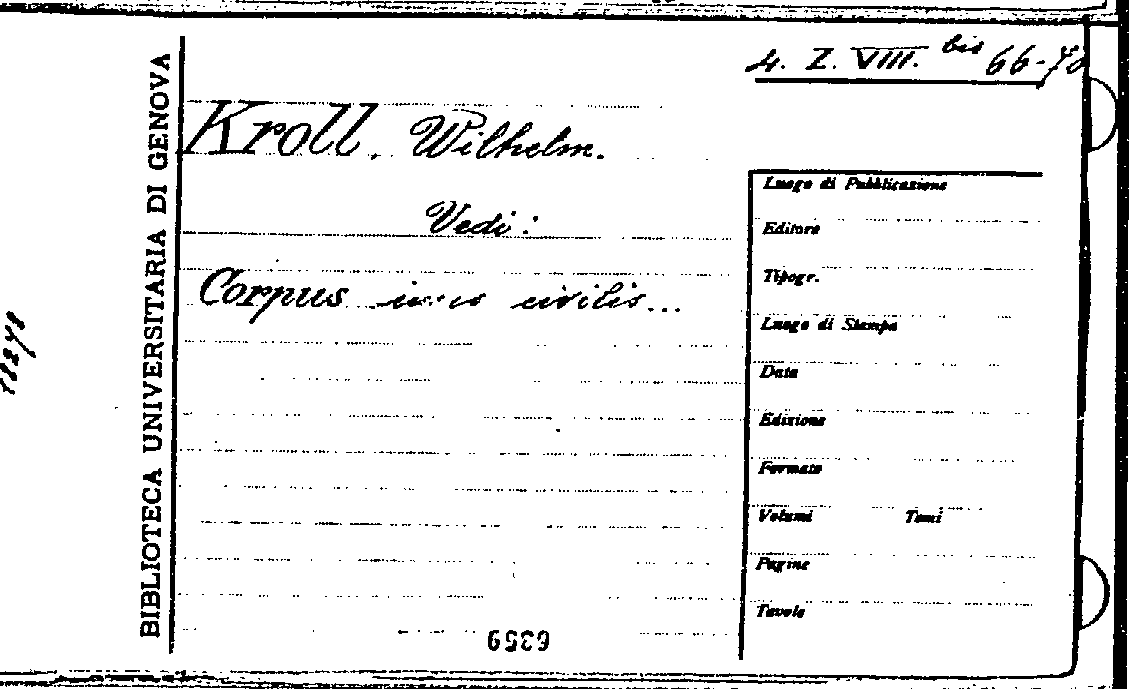 4. Z. VIII. bis 66-70
Kroll, Wilhelm.
Vedi:
Corpus iuris civilis...
BIBLIOTECA UNIVERSITARIA DI GENOVA
Luogo di Pubblicazione
Editore
Tipogr.
Luogo di Stampa
Data
Edizione
Formato
Volumi Tomi
Pagine
Tavole
6359